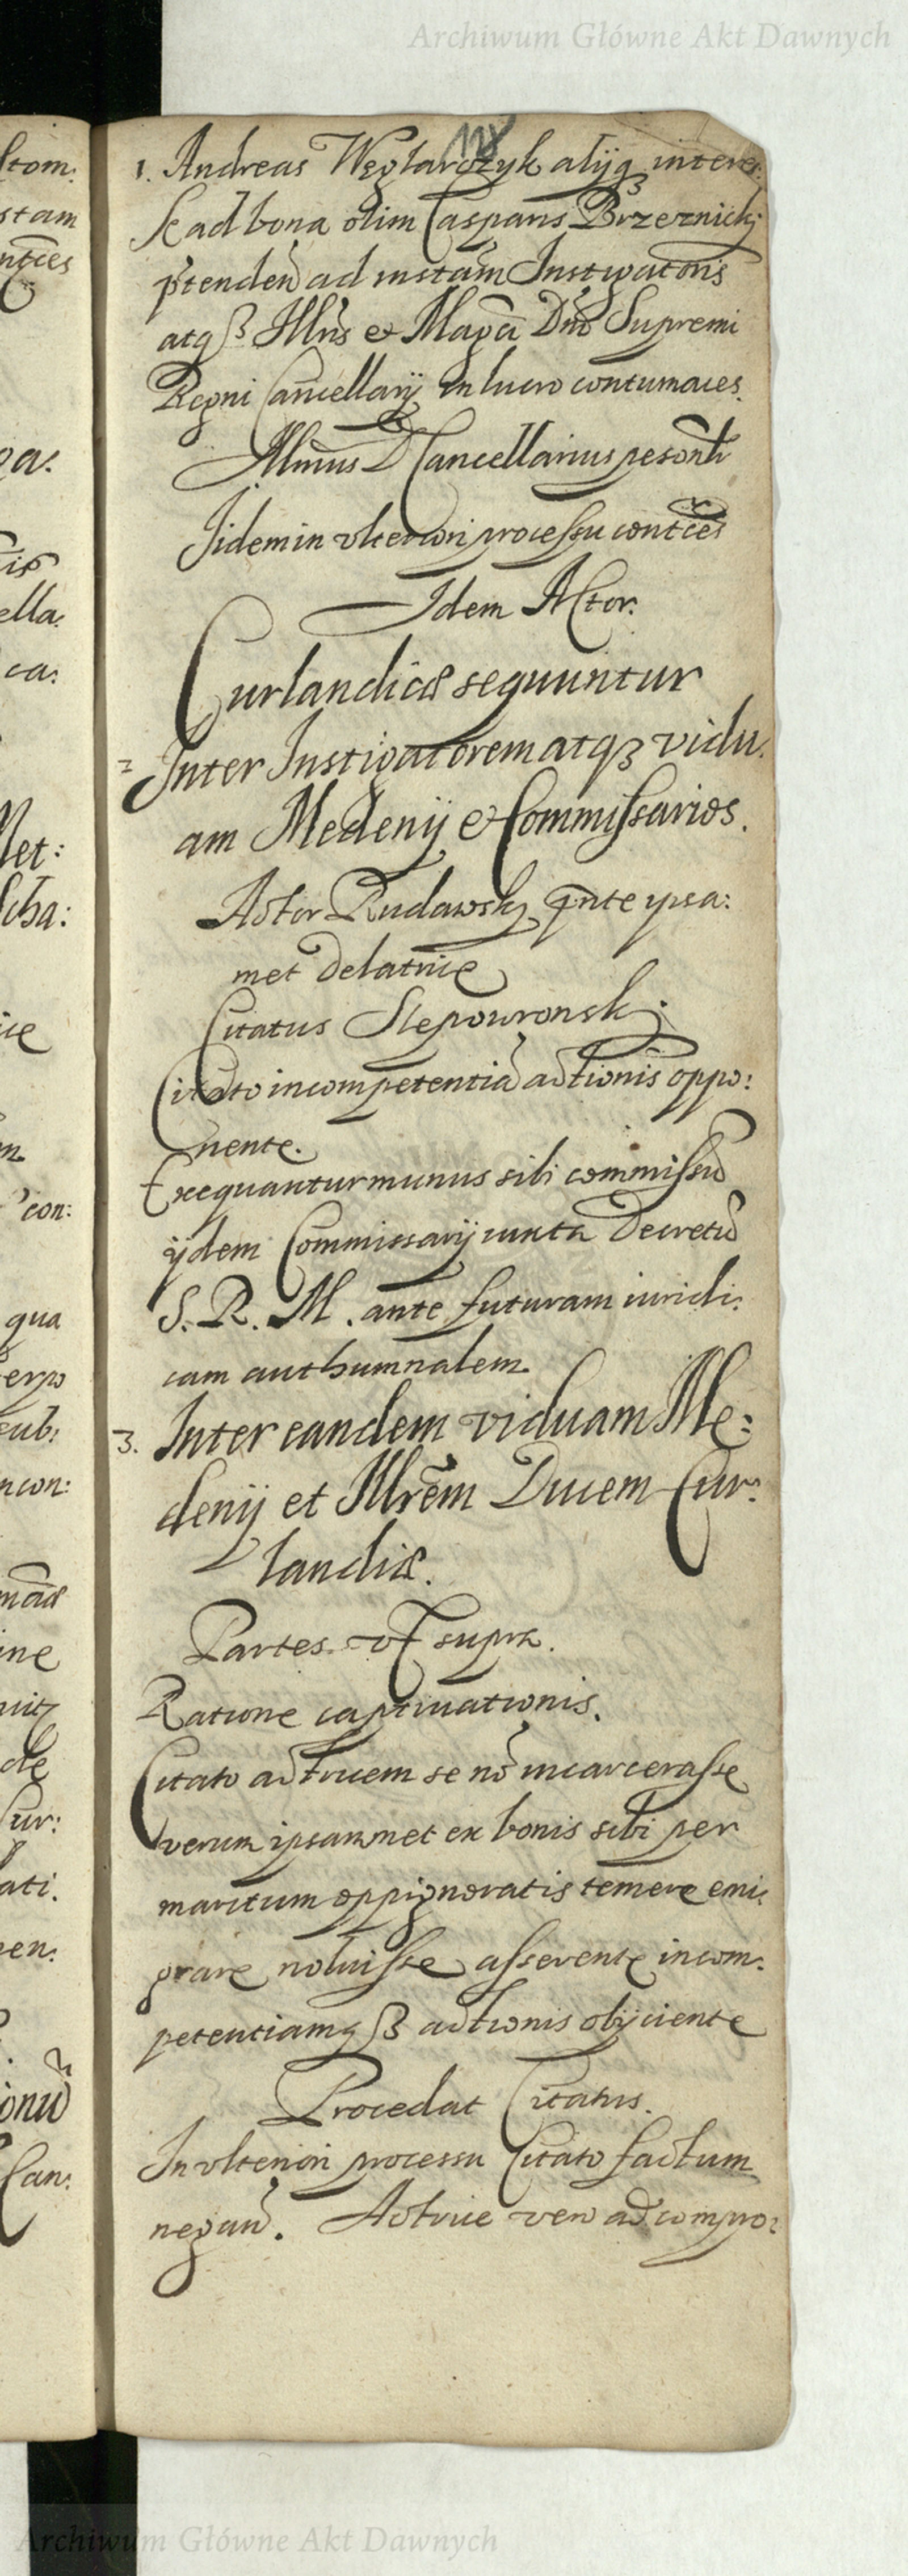 Archiwum Główne Akt Dawnych
128
1. Andreas Węglarczyk alijq3 interes:
se ad bona olim Casparis Brzeznickj
p̃tenden̄ ad instam̄ Instigatoris
atqß Illris et Magci Dni Supremi
Regni Cancellarij in lucro contumaces.
Illmus D Cancellarius personlr
Jidem in vlteriori processu contces
Idem Actor.
Curlandicæ sequuntur
2 Inter Instigatorem atq3 vidu.
am Medenij et Commissarios.
Actor Rudawskj pnte ipsa:
met delatrice
Citatus Slepowronskj
Citato incompetentiā actionis oppo:
nente.
Exequantur munus sibi commissū
ijdem Commissarij iuxta Decretū
S. R. M. ante futuram iuridi:
cam authumnalem.
3. Inter eandem viduam Me:
denij et Illrem Ducem Cur:
landiæ.
Partes vt supra.
Ratione captiuationis.
Citato actricem se nō incarcerasse
verum ipsammet ex bonis sibi per
maritum oppignoratis temere emi:
grare noluisse asserente incom:
petentiamqß actionis obijciente
Procedat Citatus.
In vlteriori processu Citato factum
negan̄. Actrice vero ad compro:
Archiwum Główne Akt Dawnych